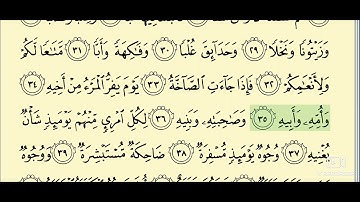 وَزَيْتُونًا وَنَخْلًا ٢٩ وَحَدَآئِقَ غُلْبًا ٣٠ وَفَٰكِهَةً وَأَبًّا ٣١ مَّتَٰعًا لَّكُمْ
وَلِأَنْعَٰمِكُمْ ٣٢ فَإِذَا جَآءَتِ ٱلصَّآخَّةُ ٣٣ يَوْمَ يَفِرُّ ٱلْمَرْءُ مِنْ أَخِيهِ ٣٤
وَأُمِّهِۦ وَأَبِيهِ ٣٥ وَصَٰحِبَتِهِۦ وَبَنِيهِ ٣٦ لِكُلِّ ٱمْرِئٍ مِّنْهُمْ يَوْمَئِذٍ شَأْنٌ
يُغْنِيهِ ٣٧ وُجُوهٌ يَوْمَئِذٍ مُّسْفِرَةٌ ٣٨ ضَاحِكَةٌ مُّسْتَبْشِرَةٌ ٣٩ وَوُجُوهٌ